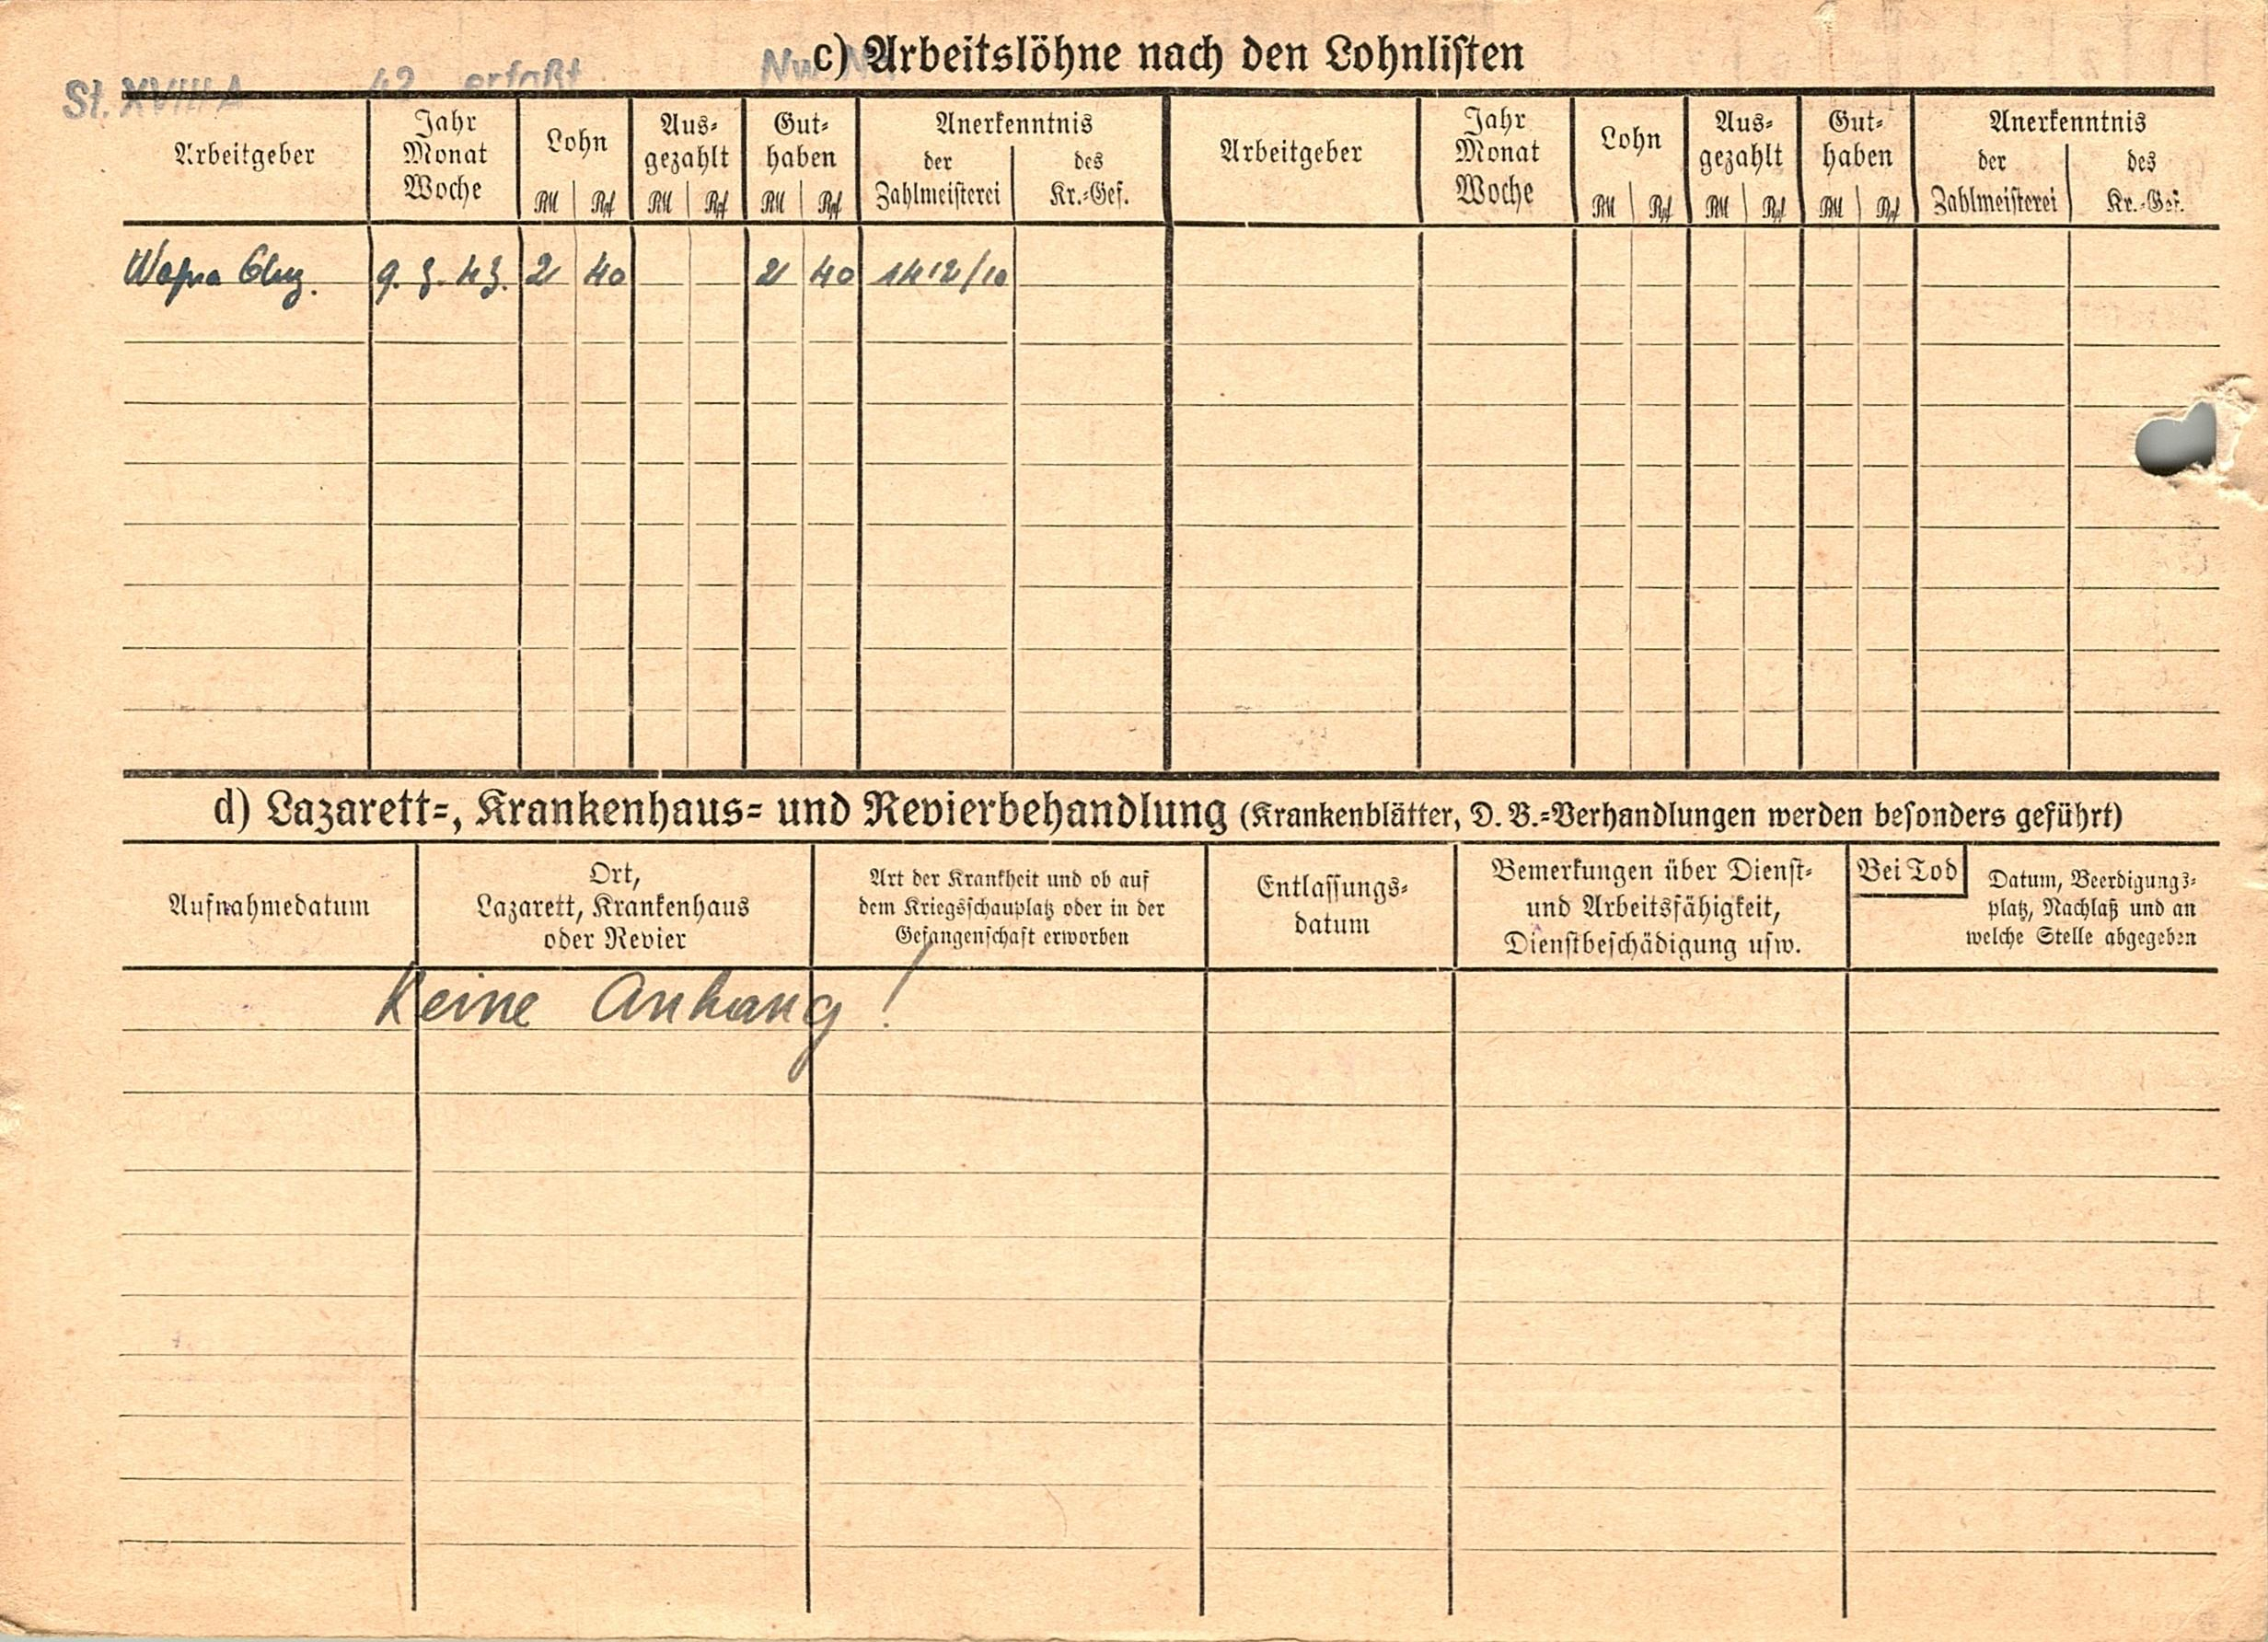 c) Arbeitslöhne nach den Lohnlisten
St. XVIII A 42 erfaßt
Arbeitgeber Jahr Monat Woche Lohn Aus- gezahlt Gut- haben Anerkenntnis Arbeitgeber Jahr Monat Woche Lohn Aus- gezahlt Gut- haben Anerkenntnis
der Zahlmeisterei des Kr.-Gef. der Zahlmeisterei des Kr.-Gef.
RM Rpf RM Rpf RM Rpf RM Rpf RM Rpf RM Rpf
43. 2 40 2 40 1412/10
d) Lazarett-, Krankenhaus- und Revierbehandlung (Krankenblätter, D. B.-Verhandlungen werden besonders geführt)
Aufnahmedatum
Ort,
Lazarett, Krankenhaus
oder Revier
Art der Krankheit und ob auf
dem Kriegsschauplatz oder in der
Gefangenschaft erworben
Entlassungs-
datum
Bemerkungen über Dienst-
und Arbeitsfähigkeit,
Dienstbeschädigung usw.
Bei Tod
Datum, Beerdigungs-
platz, Nachlaß und an
welche Stelle abgegeben
Keine Anhang !